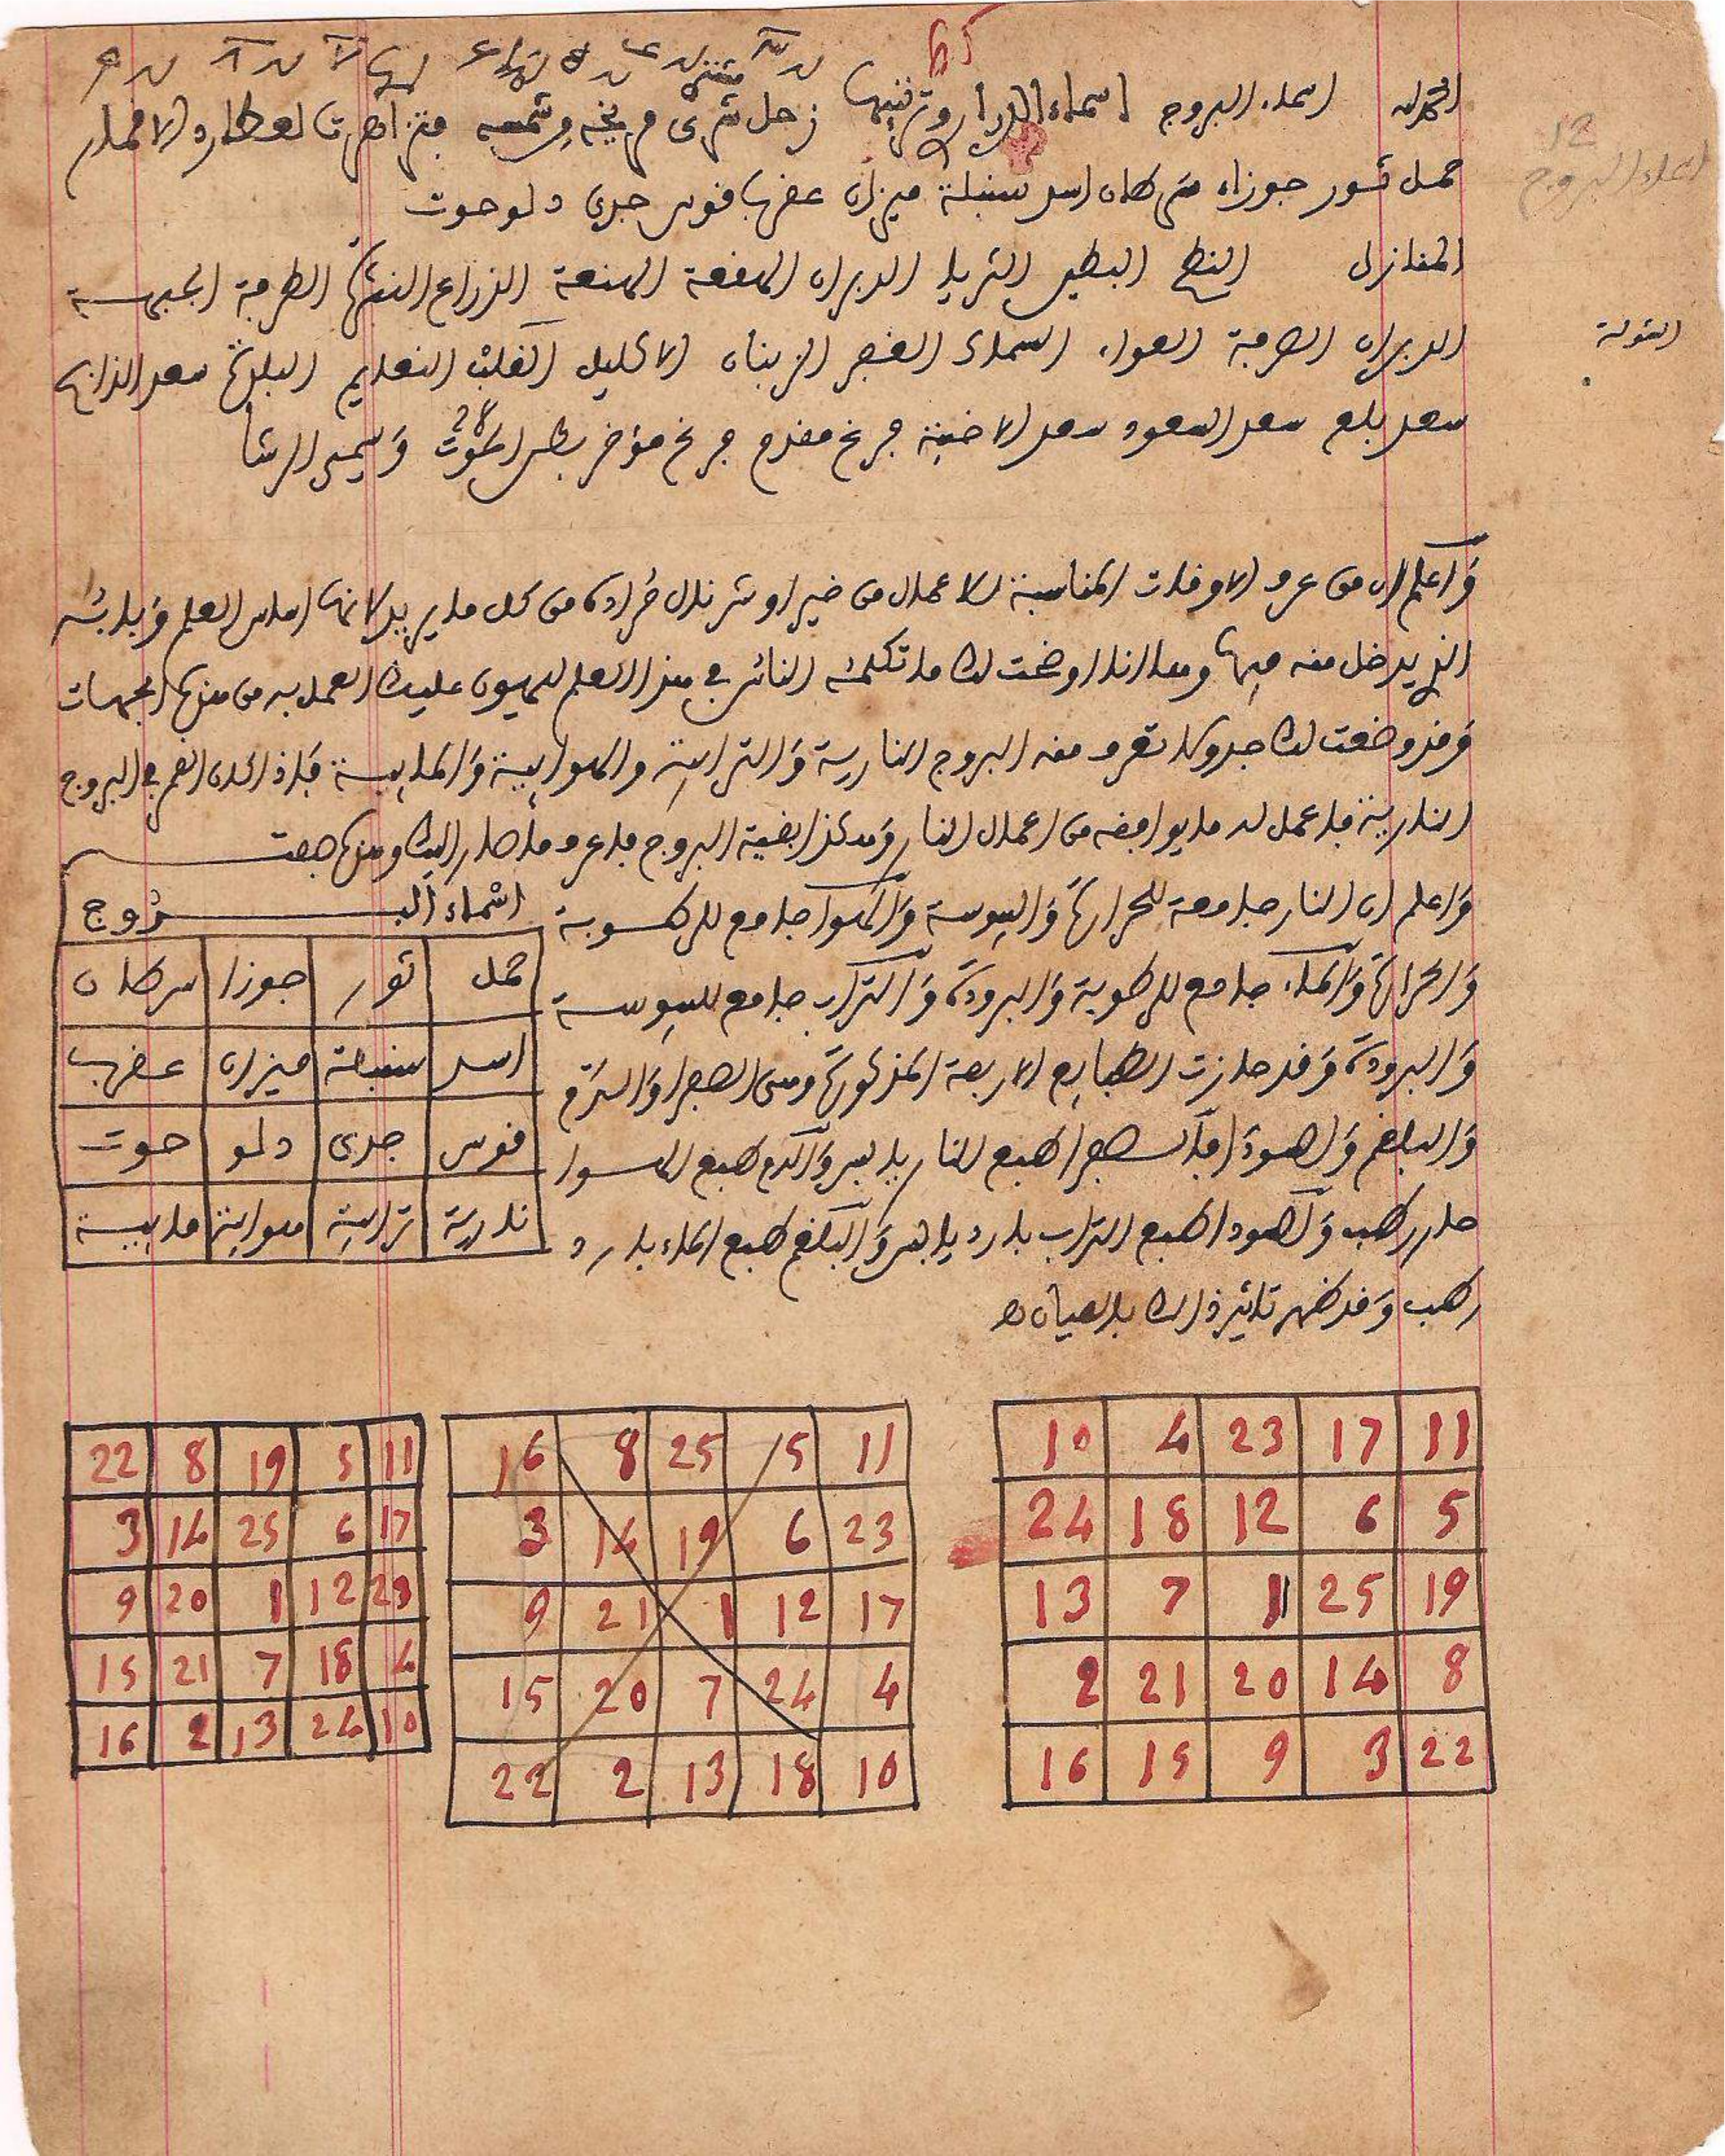 65
اسماء البروج اسماء الدراري وترتيبها زحل شرى مريخه من شمسه فتزاهرت لعطارد الاقمار
12
اعداد البروج
حمل ثور جوزاء سرطان اسد سنبلة ميزان عقرب قوس جدي دلو حوت
المنازل النطح البطين الثريا الدبران الهقعة الهنعة الذراع النثرة الطرفة الجبهة
الدبران الصرفة العواء السماك الغفر الزبنان الاكليل القلب النعايم البلدة سعد الذابح
سعد بلع سعد السعود سعد الاخبية فرغ مقدم فرغ مؤخر بطن الحوت وَيسمى الرشا
28
وَاعلم ان من عرف الاوقات المناسبة للاعمال من خير او شر نال مُراده من كل ما يريد لانها اساس العلم وَبابُه
الذي يدخل منه فيها وها انا اوضحت لك ما تكلمتُ الناس في هذا العلم ليهون عليك العمل به من هذه الجهات
وَقد وضعت لك جدولا تعرف منه البروج النارية وَالترابية والهوايية وَالمايية فَاذا كان القمر في البروج
النارية فاعمل له ما يوافقه من اعمال النار وَهكذا بقية البروج فاعرف ما صار اليك وهذه صفت
وَاعلم ان النار جامعة للحرارة وَاليبوسة وَالهوا جامع للرطوبة
وَالحرارة وَالماء جامع للرطوبة وَالبرودة وَالتراب جامع لليبوسة
وَالبرودة وَقد حازت الطبايع الاربعة المذكورة وهى الصفرا وَالدّم
وَالبلغم وَالصودَا فالصفرا طبع النار يابس وَالدم طبع الهوا
حار رطب وَالصودا طبع التراب بارد يابس وَالبلغم طبع الماء بارد
رطب وَقد ظهر تاثير ذالك بالعيان
اسْماء البروج
حمل ثور جوزا سرطان
اسد سنبلة ميزان عقرب
قوس جدى دلو حوت
نارية ترابية هوايية مايية
10 4 23 17 11
24 18 12 6 5
13 7 1 25 19
2 21 20 14 8
16 15 9 3 22
16 8 25 5 11
3 14 19 6 23
9 21 1 12 17
15 20 7 24 4
22 2 13 18 10
22 8 19 5 11
3 14 25 6 17
9 20 1 12 23
15 21 7 18 4
16 2 13 24 10